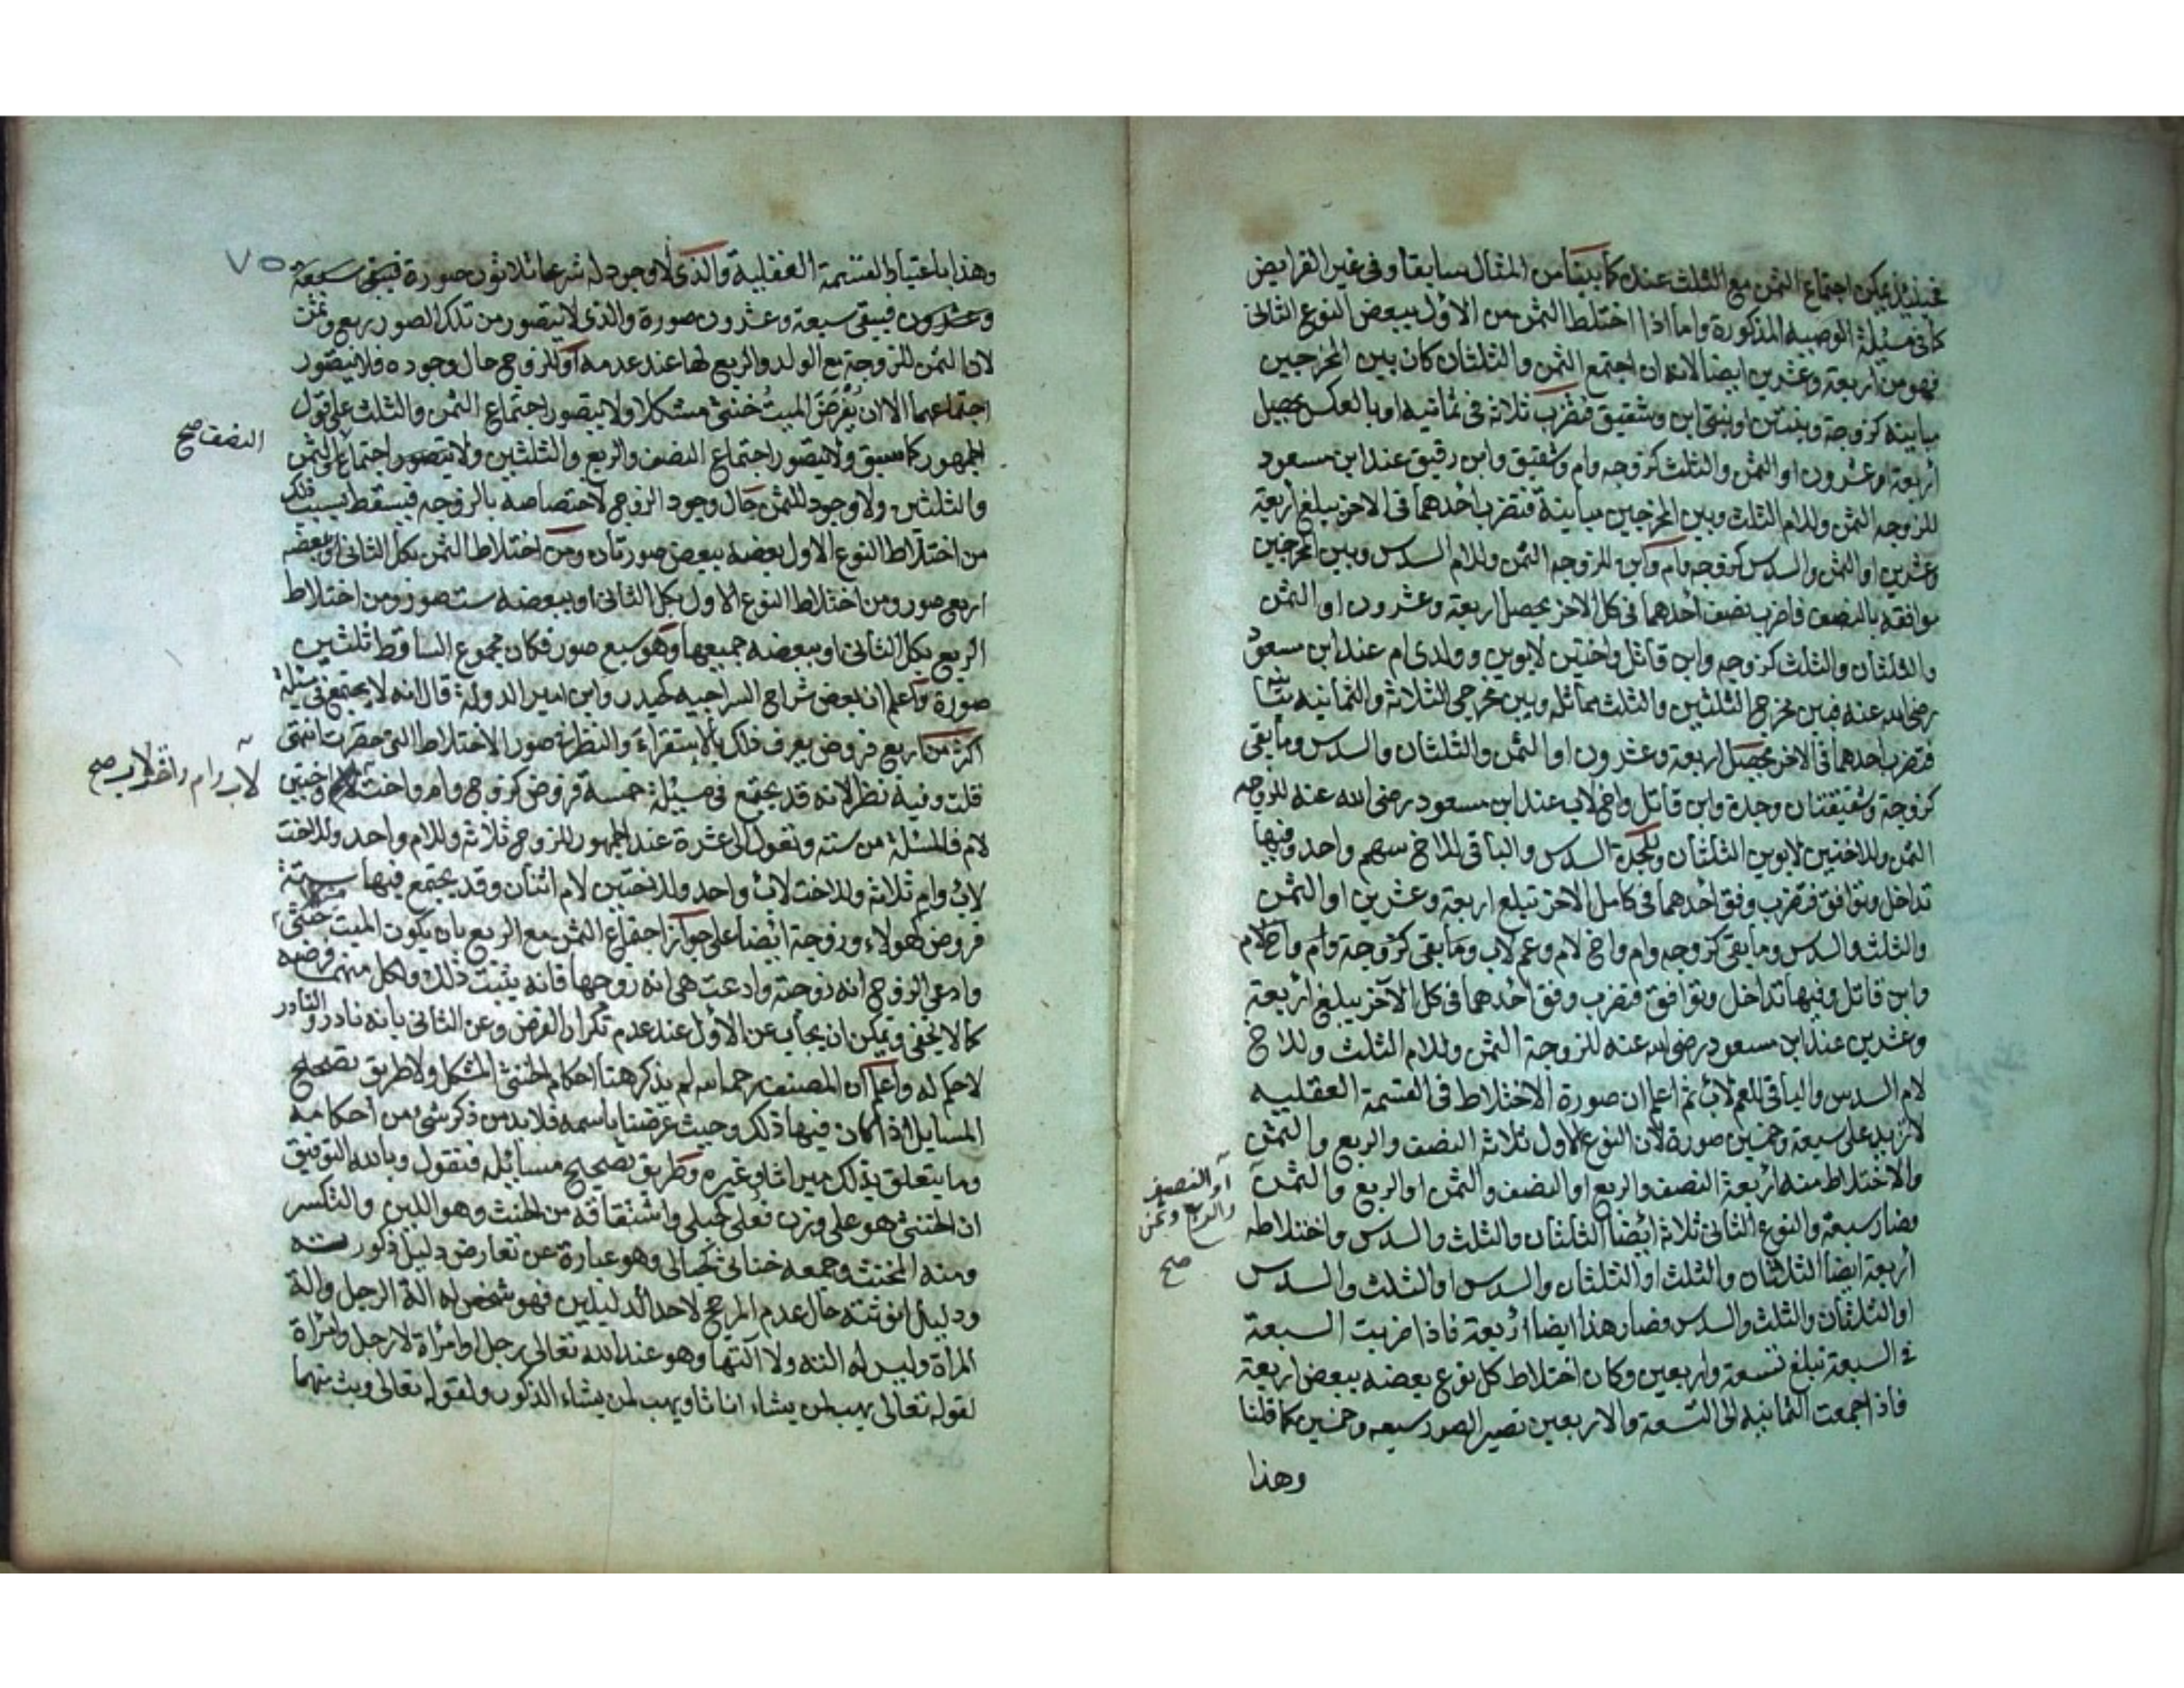 فحينئذ يمكن اجتماع الثمن مع الثلث عنده كما بيناس المثال سابقا وفي غير الفرايض
كما في مسئلة الوصيه المذكورة واما اذا اختلط الثمن من الاول ببعض النوع الثانى
فهو من اربعة وعشرين ايضا لانه ان اجتمع الثمن والثلثان كان بين المخرجين
مباينه كزوجة وبنتين او بنتى ابن وشقيق فتضرب ثلاثة في ثمانيه او بالعكس يحصل
اربعة وعشرون او الثمن والثلث كزوجه وام وشقيق وابن رقيق عند ابن مسعود
للزوجه الثمن وللام الثلث وبين المخرجين مباينة فتضرب احدهما في الاخر يبلغ اربعة
وعشرين او الثمن والسدس كزوجه وام وابن للزوجه الثمن وللام السدس وبين المخرجين
موافقه بالنصف فاضرب نصف احدهما في كل الاخر يحصل اربعة وعشرون او الثمن
والثلثان والثلث كزوجه وابن قاتل واختين لابوين وولدى ام عند ابن مسعود
رضى الله عنه فبين مخرج الثلثين والثلث مماثله وبين مخرجى الثلاثة والثمانيه تباين
فتضرب احدهما في الاخر يحصل اربعة وعشرون او الثمن والثلثان والسدس وما بقى
كزوجة وشقيقتان وجدة وابن قاتل واخ لاب عند ابن مسعود رضى الله عنه للزوجه
الثمن وللاختين لابوين الثلثان وللجدة السدس والباقى للاخ سهم واحد وفيها
تداخل وتوافق فتضرب وفق احدهما في كامل الاخر تبلغ اربعة وعشرين او الثمن
والثلث والسدس وما بقى كزوجه وام واخ لام وعم لاب وما بقى كزوجة وام واخ لام
وابن قاتل وفيها تداخل وتوافق فتضرب وفق احدهما في كل الآخر يبلغ اربعة
وعشرين عند ابن مسعود رضى الله عنه للزوجة الثمن وللام الثلث وللاخ
لام السدس والباقى للعم لاب ثم اعلم ان صورة الاختلاط في القسمة العقليه
لا تزيد على سبعة وخمسين صورة لان النوع الاول ثلاثة النصف والربع والثمن
والاختلاط منه اربعة النصف والربع او النصف والثمن او الربع والثمن
او النصف
والربع وثمن
صح
فصار سبعة والنوع الثانى ثلاثة ايضا الثلثان والثلث والسدس واختلاطه
اربعة ايضا الثلثان والثلث او الثلثان والسدس او الثلث والسدس
او الثلثان والثلث والسدس فصار هذا ايضا اربعة فاذا ضربت السبعة
في السبعة تبلغ تسعة واربعين وكان اختلاط كل نوع بعضه ببعض اربعة
فاذا جمعت الثمانيه الى التسعة والاربعين تصير الصور سبعه وخمسين كما قلنا
وهذا
٧٥
وهذا باعتبار القسمة العقلية والذى لا وجود له شرعا ثلاثون صورة فيبقى سبعة
وعشرون فيبقى سبعة وعشرون صورة والذى لا يتصور من تلك الصور ربع وثمن
لان الثمن للزوجة مع الولد والربع لها عند عدمه او للزوج حال وجوده فلا يتصور
اجتماعهما الا ان يفرض الميت خنثى مشكلا ولا يتصور اجتماع الثمن والثلث على قول
الجمهور كما سبق ولا يتصور اجتماع النصف والربع والثلثين ولا يتصور اجتماع الثمن
النصف صح
والثلثين ولا وجود للثمن حال وجود الزوج لاختصاصه بالزوجه فيسقط بسبب ذلك
من اختلاط النوع الاول بعضه ببعض صورتان ومن اختلاط الثمن بكل الثانى او ببعضه
اربع صور ومن اختلاط النوع الاول بكل الثانى او ببعضه ست صور ومن اختلاط
الربع بكل الثانى او ببعضه جميعها وهو سبع صور فكان مجموع الساقط ثلثين
صورة واعلم ان بعض شراح السراجيه كحيدر وابن امير الدولة قال انه لا يجتمع في مسئلة
اكثر من اربع فروض يعرف ذلك بالاستقراء والنظر في صور الاختلاط التى حضرت انتهى
قلت وفيه نظر لانه قد يجتمع في مسئلة خمسة فروض كزوج وام واخت واختين
لاب وام واخت لاب صح
لام فالمسئلة من ستة وتعول الى عشرة عند الجمهور للزوج ثلاثة وللام واحد وللاخت
لاب وام ثلاثة وللاخت لاب واحد وللاختين لام اثنان وقد يجتمع فيها ستة
فروض كهولاء وزوجة ايضا على جواز اجتماع الثمن مع الربع بان يكون الميت خنثى مشكلا
وادعى الزوج انه زوجته وادعت هى انه زوجها فانه يثبت ذلك ولكل منهما فرضه
كما لا يخفى ويمكن ان يجاب عن الاول عند عدم تكرار الفرض وعن الثانى بانه نادر والنادر
لا حكم له واعلم ان المصنف رحمه الله لم يذكر هنا احكام الخنثى المشكل ولا طريق تصحيح
المسايل اذا كان فيها ذلك وحيث عرضنا باسمه فلا بد من ذكر شئ من احكامه
وما يتعلق بذلك ميراثا وغيره وطريق تصحيح مسائله فنقول وبالله التوفيق
ان الخنثى هو على وزن فعلى كحبلى واشتقاقه من الخنث وهو اللين والتكسر
ومنه المخنث وجمعه خناثى كحبالى وهو عبارة عن تعارض دليل ذكورته
ودليل انوثته حال عدم المرجح لاحد الدليلين فهو شخص له الة الرجل والة
المراة وليس له الته ولا آلتها وهو عند الله تعالى رجل او امراة لا رجل وامراة
لقوله تعالى يهب لمن يشاء اناثا ويهب لمن يشاء الذكور ولقوله تعالى وبث منهما